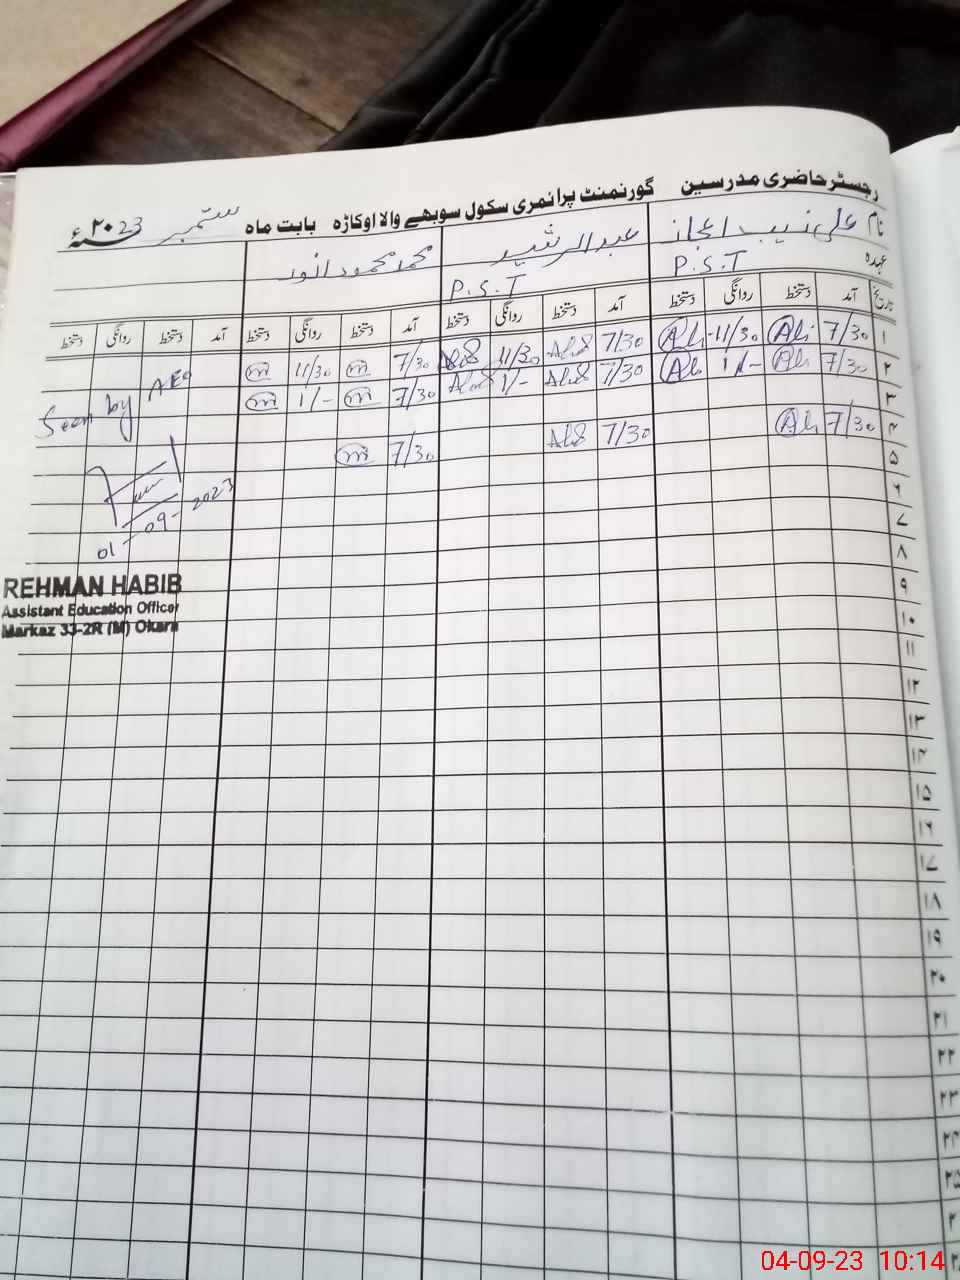 رجسٹر حاضری مدرسین گورنمنٹ پرائمری سکول سوبھے والا اوکاڑہ بابت ماہ ستمبر ۲۰23ء
نام علی زیب اعجاز عبدالرشید محمد محمود انور
عہدہ P.S.T P.S.T
تاریخ آمد دستخط روانگی دستخط آمد دستخط روانگی دستخط آمد دستخط روانگی دستخط آمد دستخط روانگی دستخط
۱ 7/30 Ali 11/30 Ali 7/30 11/30 7/30 m 11/30 m
۲ 7/30 Ali 1/- Ali 7/30 1/- 7/30 m 1/- m
۳
۴ 7/30 Ali 7/30 7/30 m
۵
۶
۷
۸
۹
۱۰
۱۱
۱۲
۱۳
۱۴
۱۵
۱۶
۱۷
۱۸
۱۹
۲۰
۲۱
۲۲
۲۳
۲۴
۲۵
Seen by AEO
01-09-2023
REHMAN HABIB
Assistant Education Officer
Markaz 33-2R (M) Okara
04-09-23 10:14